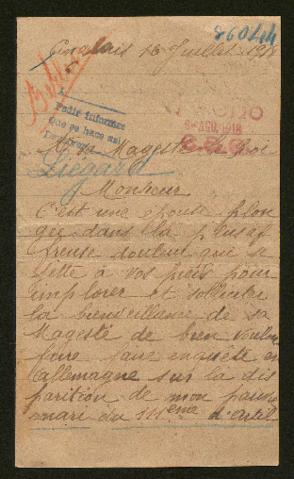 44098
Calais 16 Juillet 1918
Pedir informes
Que se hace así
5-AGO.1918
A sa Magesté le Roi
Liégard
Monsieur
C'est une épouse plon
gée dans la plus af
freuse douleur que se
jette à vos pieds pour
implorer et solliciter
la bienveillance de sa
Magesté de bien vouloir
faire faire enquete en
Allemagne sur la dis
parition de mon pauvre
mari du 111eme d'artil